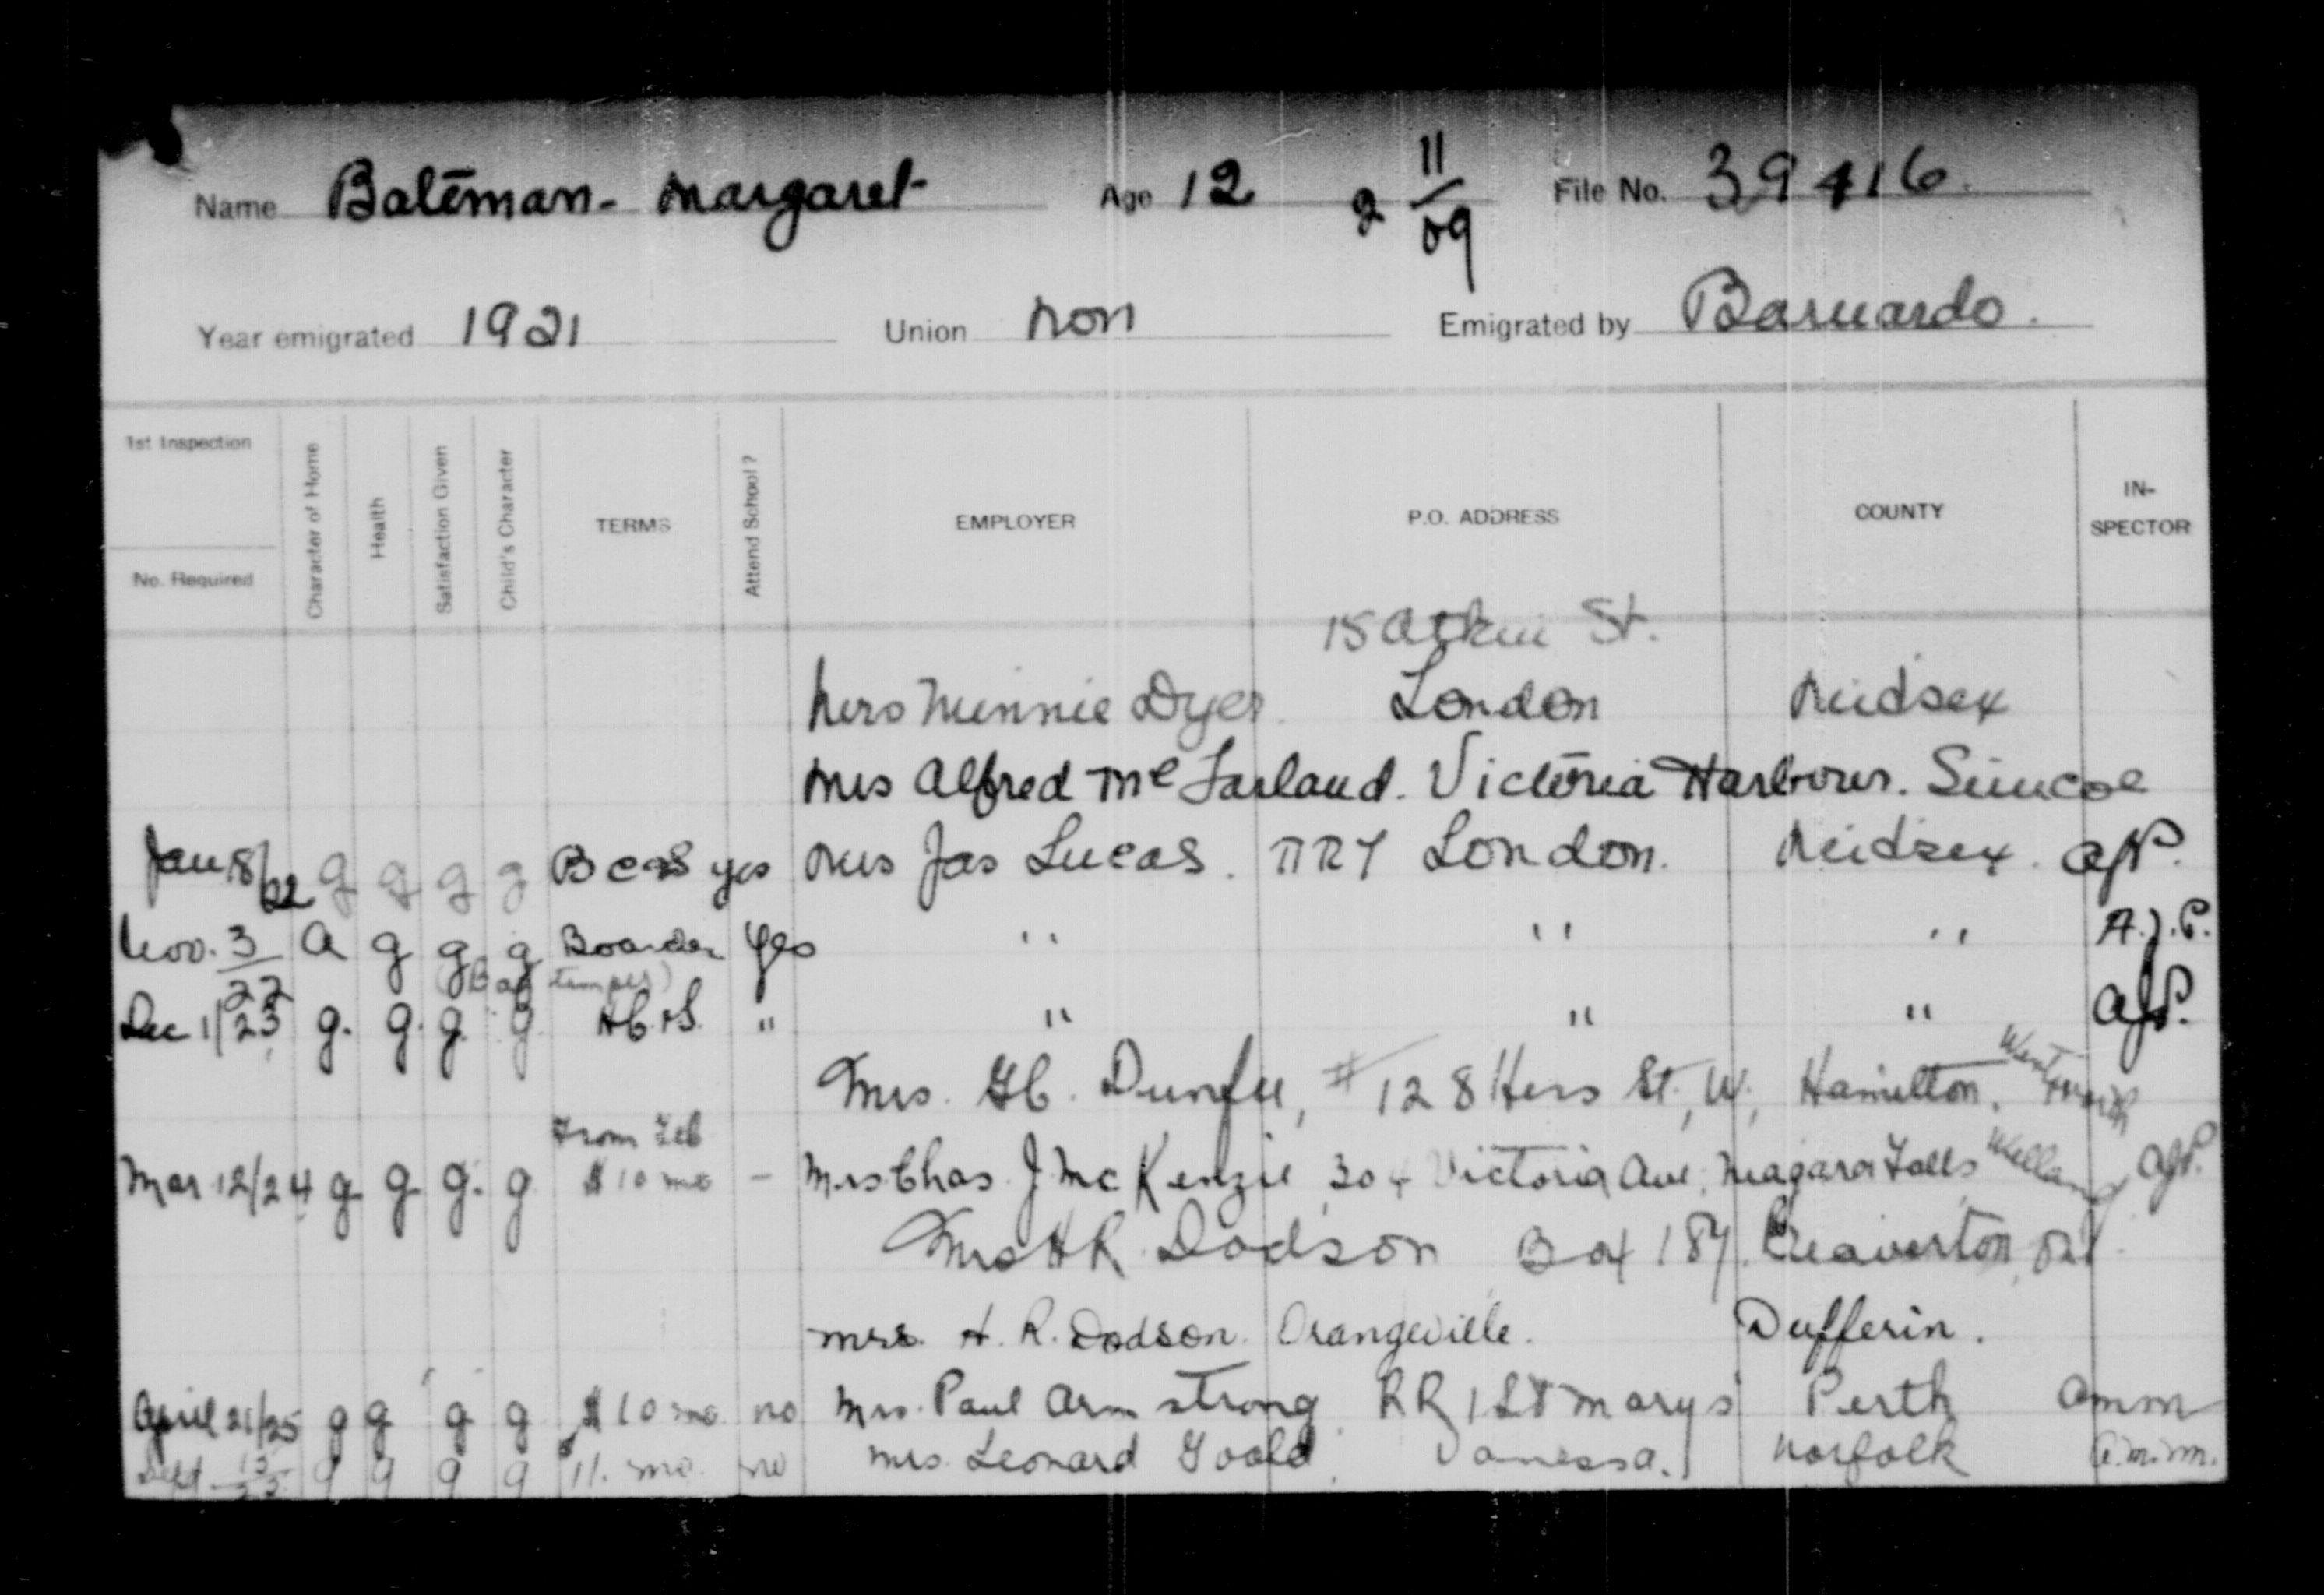 Name Bateman - Margaret Age 12 2 11/09 File No. 39416.
Year emigrated 1921 Union non Emigrated by Barnardo.
1st Inspection
No. Required
Character of Home
Health
Satisfaction Given
Child's Character
TERMS
Attend School?
EMPLOYER
P.O. ADDRESS
COUNTY
IN-
SPECTOR
15 St.
Mrs Minnie Dyer. London Midsex
Mrs Alfred McFarland. Victoria Harbour. Simcoe
Jan 18/22 g g g g yes Mrs Jas Lucas. RR7 London. Midsex. AJP.
Nov. 3/22 a g g g Boarder yes " " " A.J.P.
(Bad temper)
Dec 1/23 g. g. g. g " " " " AJP.
Mrs. #128 St. W. Hamilton. Wentworth
From Feb
Mar 12/24 g g g. g $10 mo - Mrs Chas. J. McKenzie, 304 Victoria Ave, Niagara Falls Welland AJP.
Mrs H R Dodson Box 187. Beaverton, Ont.
Mrs. H. R. Dodson. Orangeville. Dufferin.
April 21/25 g g g g $10 mo no Mrs. Paul Armstrong. RR 1 St Marys Perth amm
Sept 15/25 g g g g 11. mo. no Mrs. Leonard Goold. Vanessa. Norfolk a.m.m.